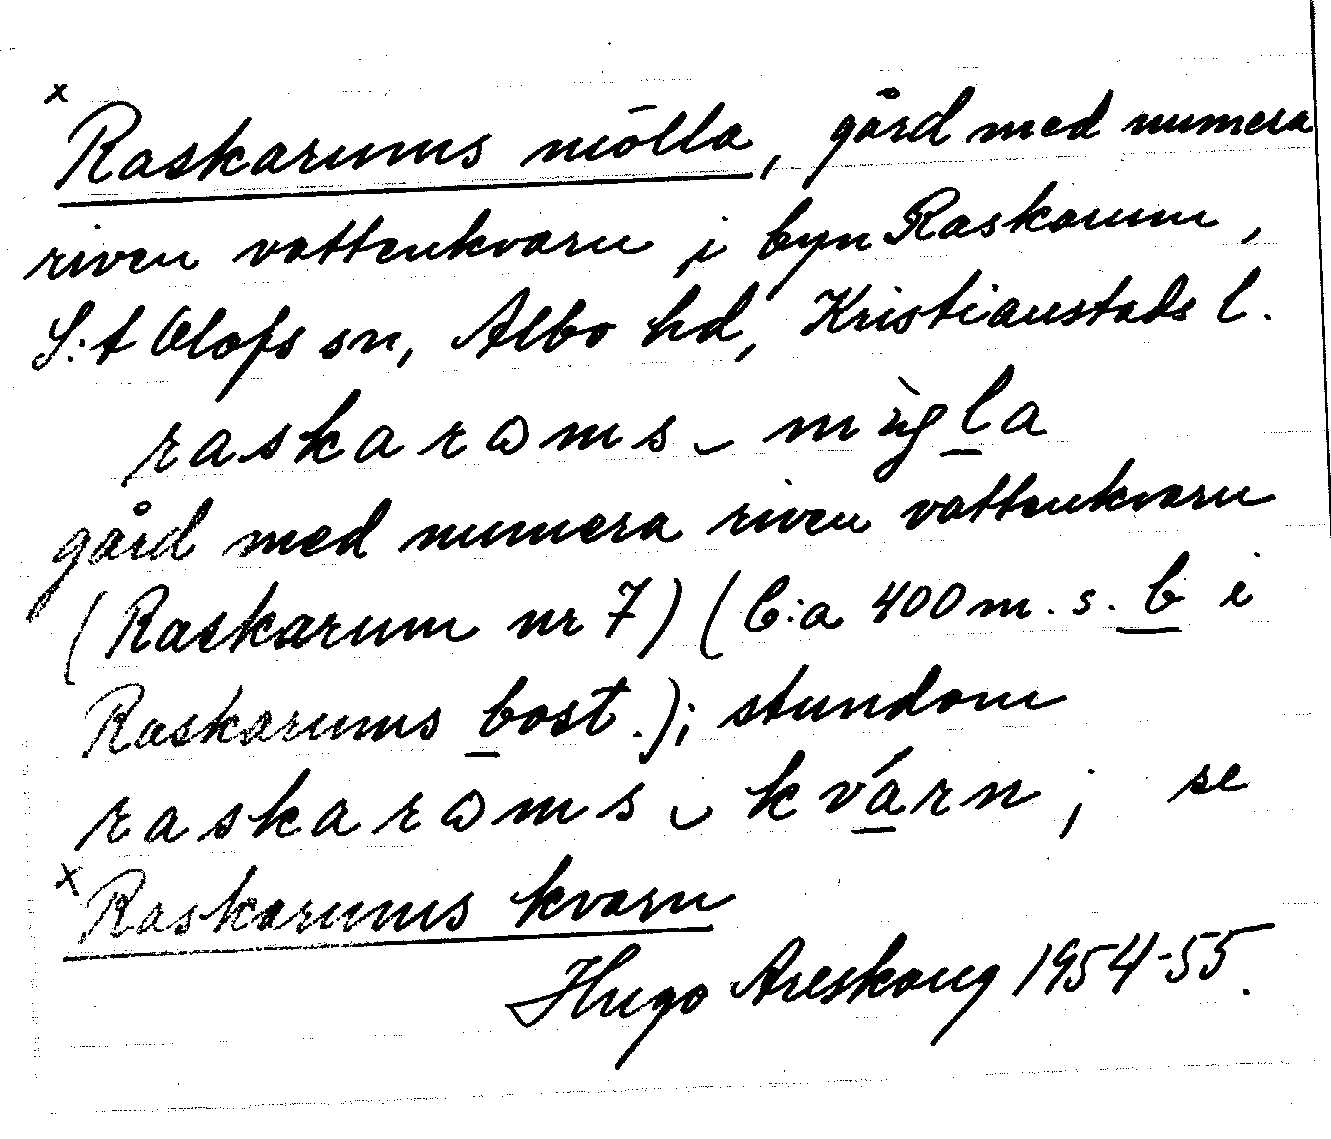 x Raskarums mölla, gård med numera
riven vattenkvarn i byn Raskarum,
S:t Olofs sn, Albo hd, Kristianstads l.
raskarɷms ‿
gård med numera riven vattenkvarn
(Raskarum nr 7) (C:a 400 m. s. b i
Raskarums bost.); stundom
raskarɷms ‿ kvá̱rn; se
x Raskarums kvarn
Hugo Areskoug 1954-55.